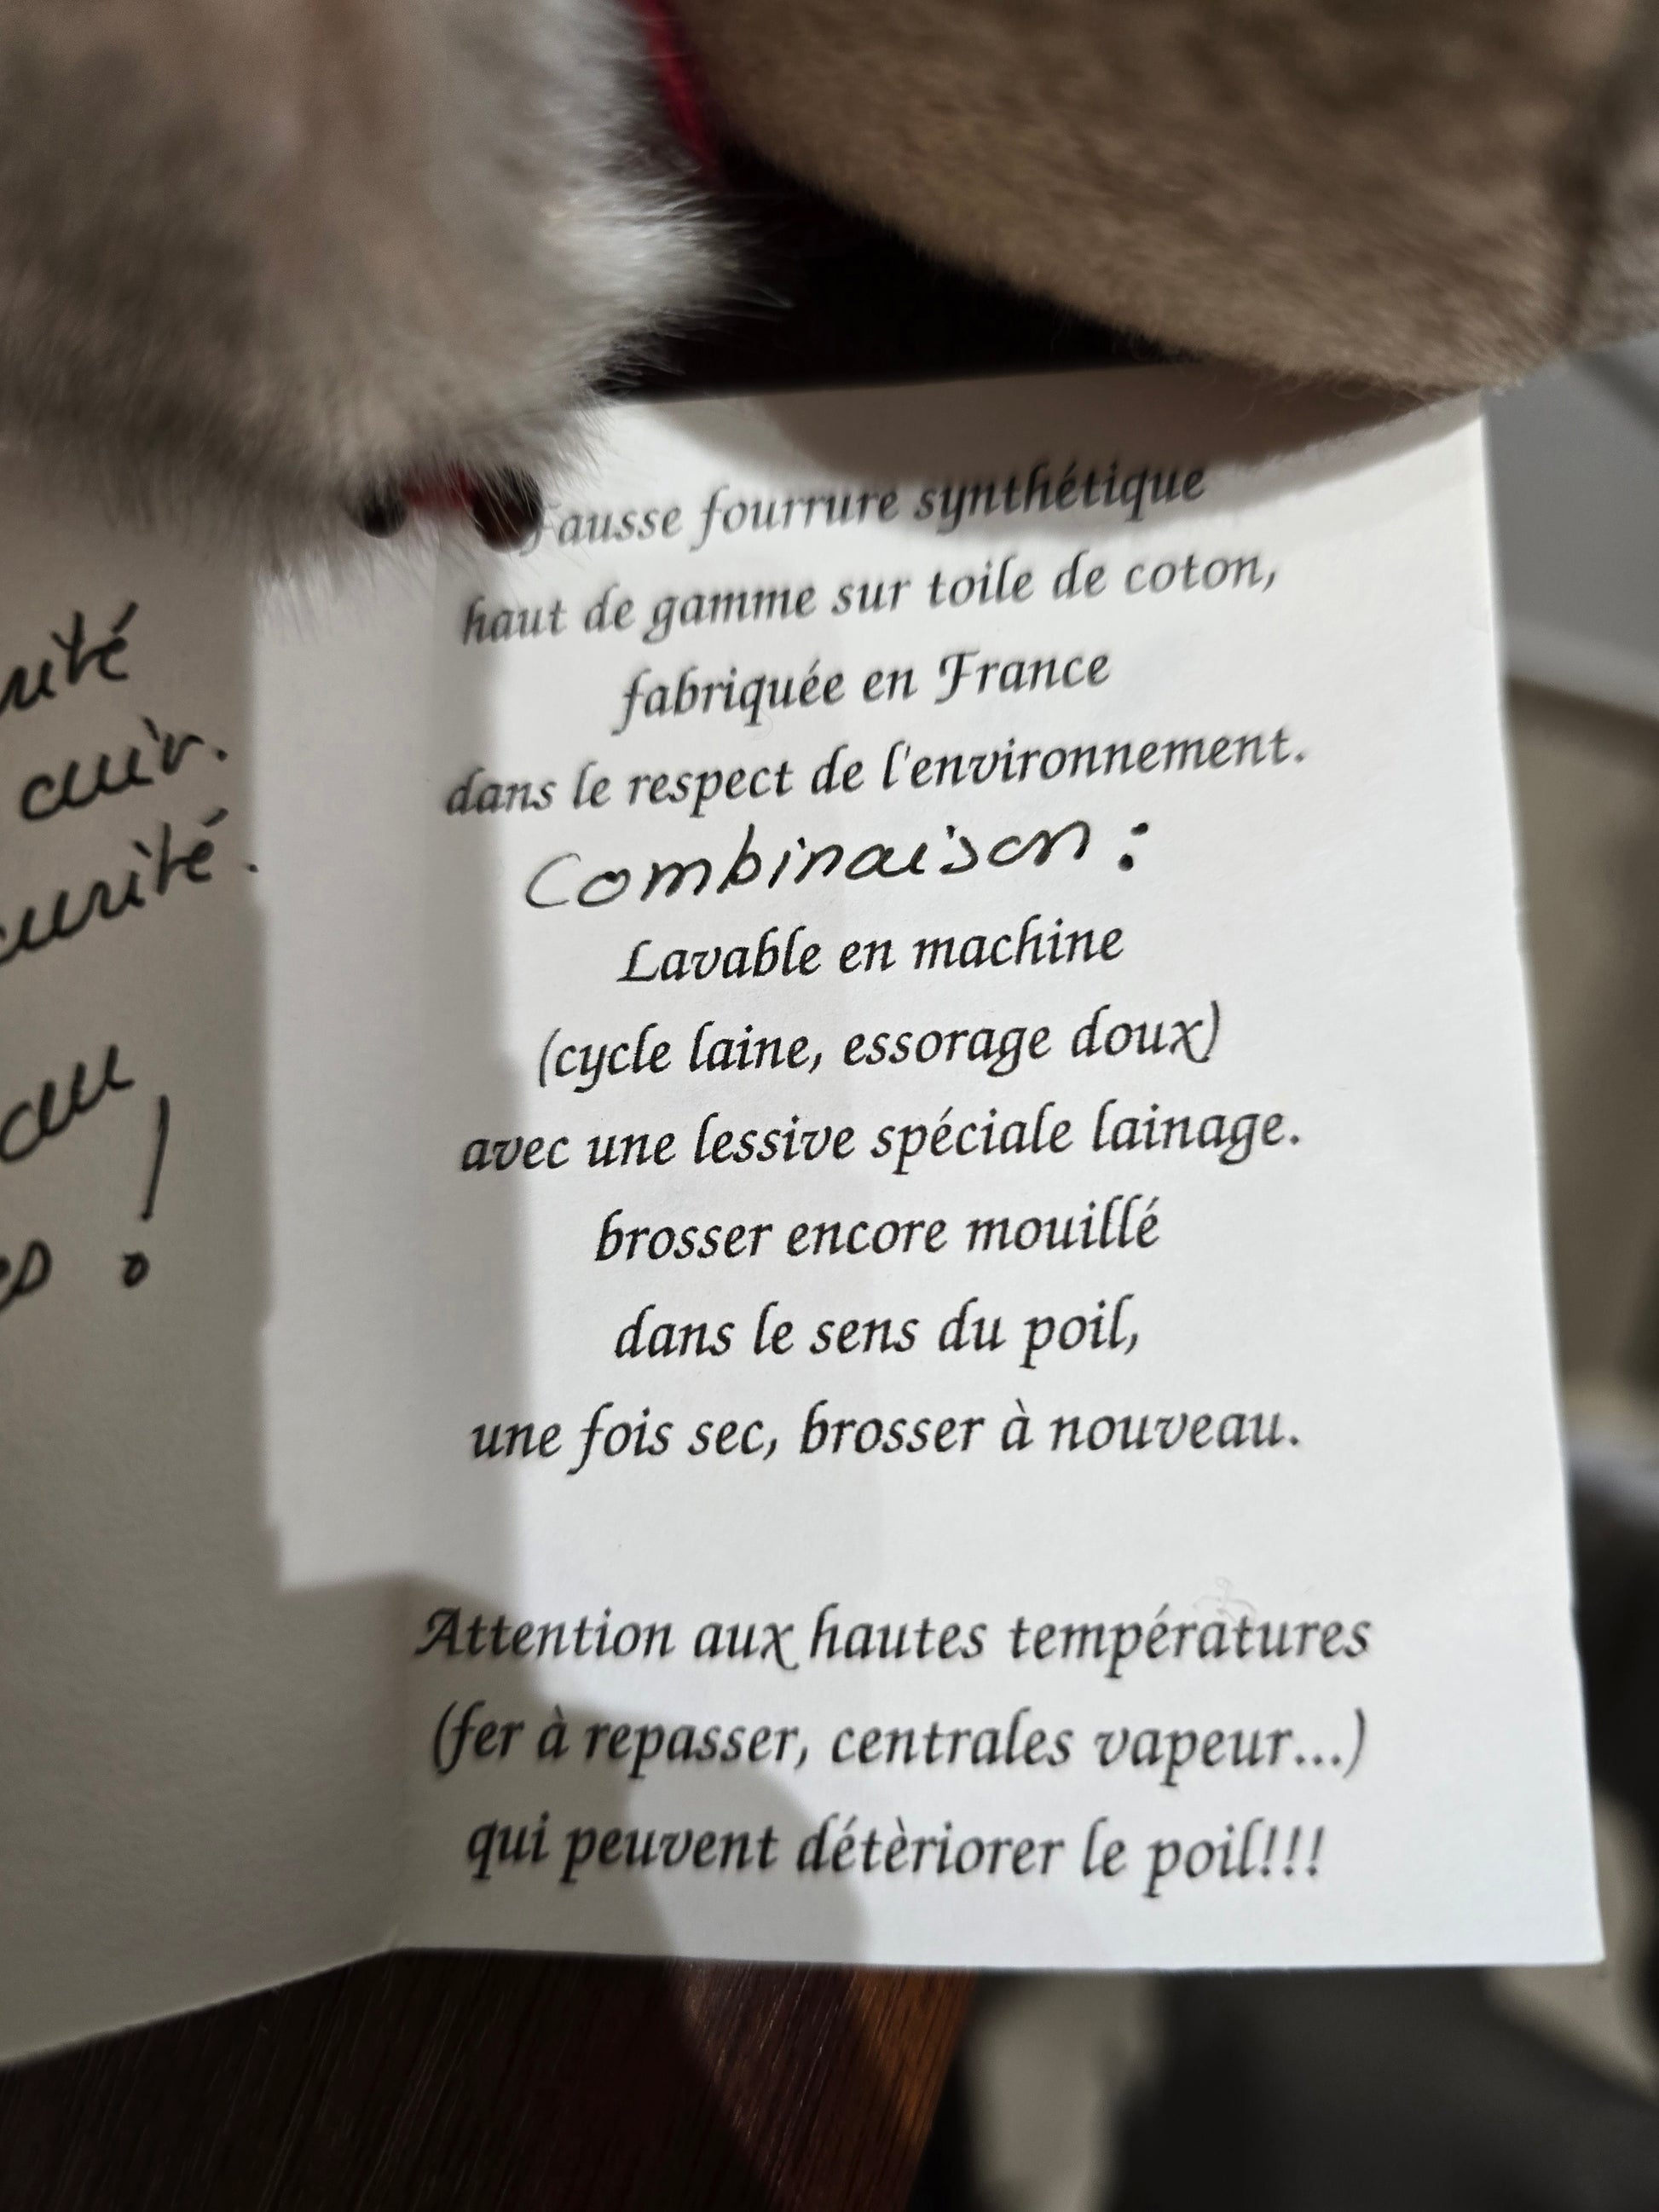 Fausse fourrure synthétique
haut de gamme sur toile de coton,
fabriquée en France
dans le respect de l'environnement.
Combinaison :
Lavable en machine
(cycle laine, essorage doux)
avec une lessive spéciale lainage.
brosser encore mouillé
dans le sens du poil,
une fois sec, brosser à nouveau.
Attention aux hautes températures
(fer à repasser, centrales vapeur...)
qui peuvent détèriorer le poil!!!
cuir.